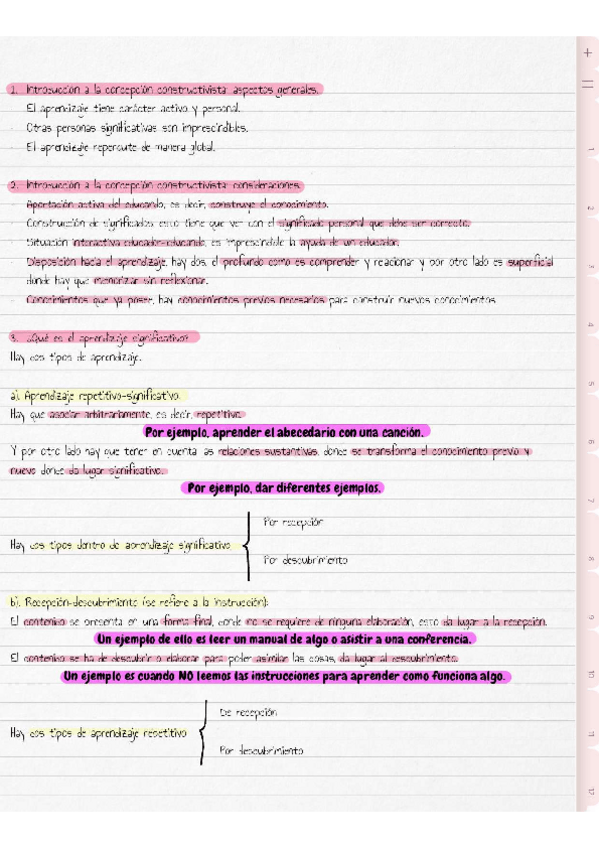 1. Introducción a la concepción constructivista: aspectos generales.
El aprendizaje tiene carácter activo y personal.
- Otras personas significativas son imprescindibles.
- El aprendizaje repercute de manera global.
2. Introducción a la concepción constructivista: consideraciones.
- Aportación activa del educando, es decir, construye el conocimiento.
- Construcción de significados esto tiene que ver con el significado personal que debe ser correcto.
- Situación interactiva educador-educando, es imprescindible la ayuda de un educador.
- Disposición hacia el aprendizaje, hay dos, el profundo como es comprender y relacionar y por otro lado es superficial
donde hay que memorizar sin reflexionar.
- Conocimientos que ya posee, hay conocimientos previos necesarios para construir nuevos conocimientos
3. ¿Qué es el aprendizaje significativo?
Hay dos tipos de aprendizaje.
a). Aprendizaje repetitivo-significativo.
Hay que asociar arbitrariamente, es decir, repetitivo.
Por ejemplo, aprender el abecedario con una canción.
Y por otro lado hay que tener en cuenta las relaciones sustantivas, donde se transforma el conocimiento previo y
nuevo donde da lugar significativo.
Por ejemplo, dar diferentes ejemplos.
Por recepción
Hay dos tipos dentro de aprendizaje significativo
Por descubrimiento
b). Recepción-descubrimiento (se refiere a la instrucción):
El contenido se presenta en una forma final, donde no se requiere de ninguna elaboración, esto da lugar a la recepción.
Un ejemplo de ello es leer un manual de algo o asistir a una conferencia.
El contenido se ha de descubrir o elaborar para poder asimilar las cosas, da lugar al descubrimiento.
Un ejemplo es cuando NO leemos las instrucciones para aprender como funciona algo.
De recepción
Hay dos tipos de aprendizaje repetitivo
Por descubrimiento
1
2
3
4
5
6
7
8
9
10
11
12